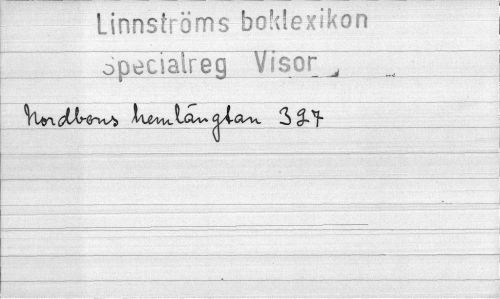 Linnströms boklexikon
Specialreg Visor
Nordbons hemlängtan 327